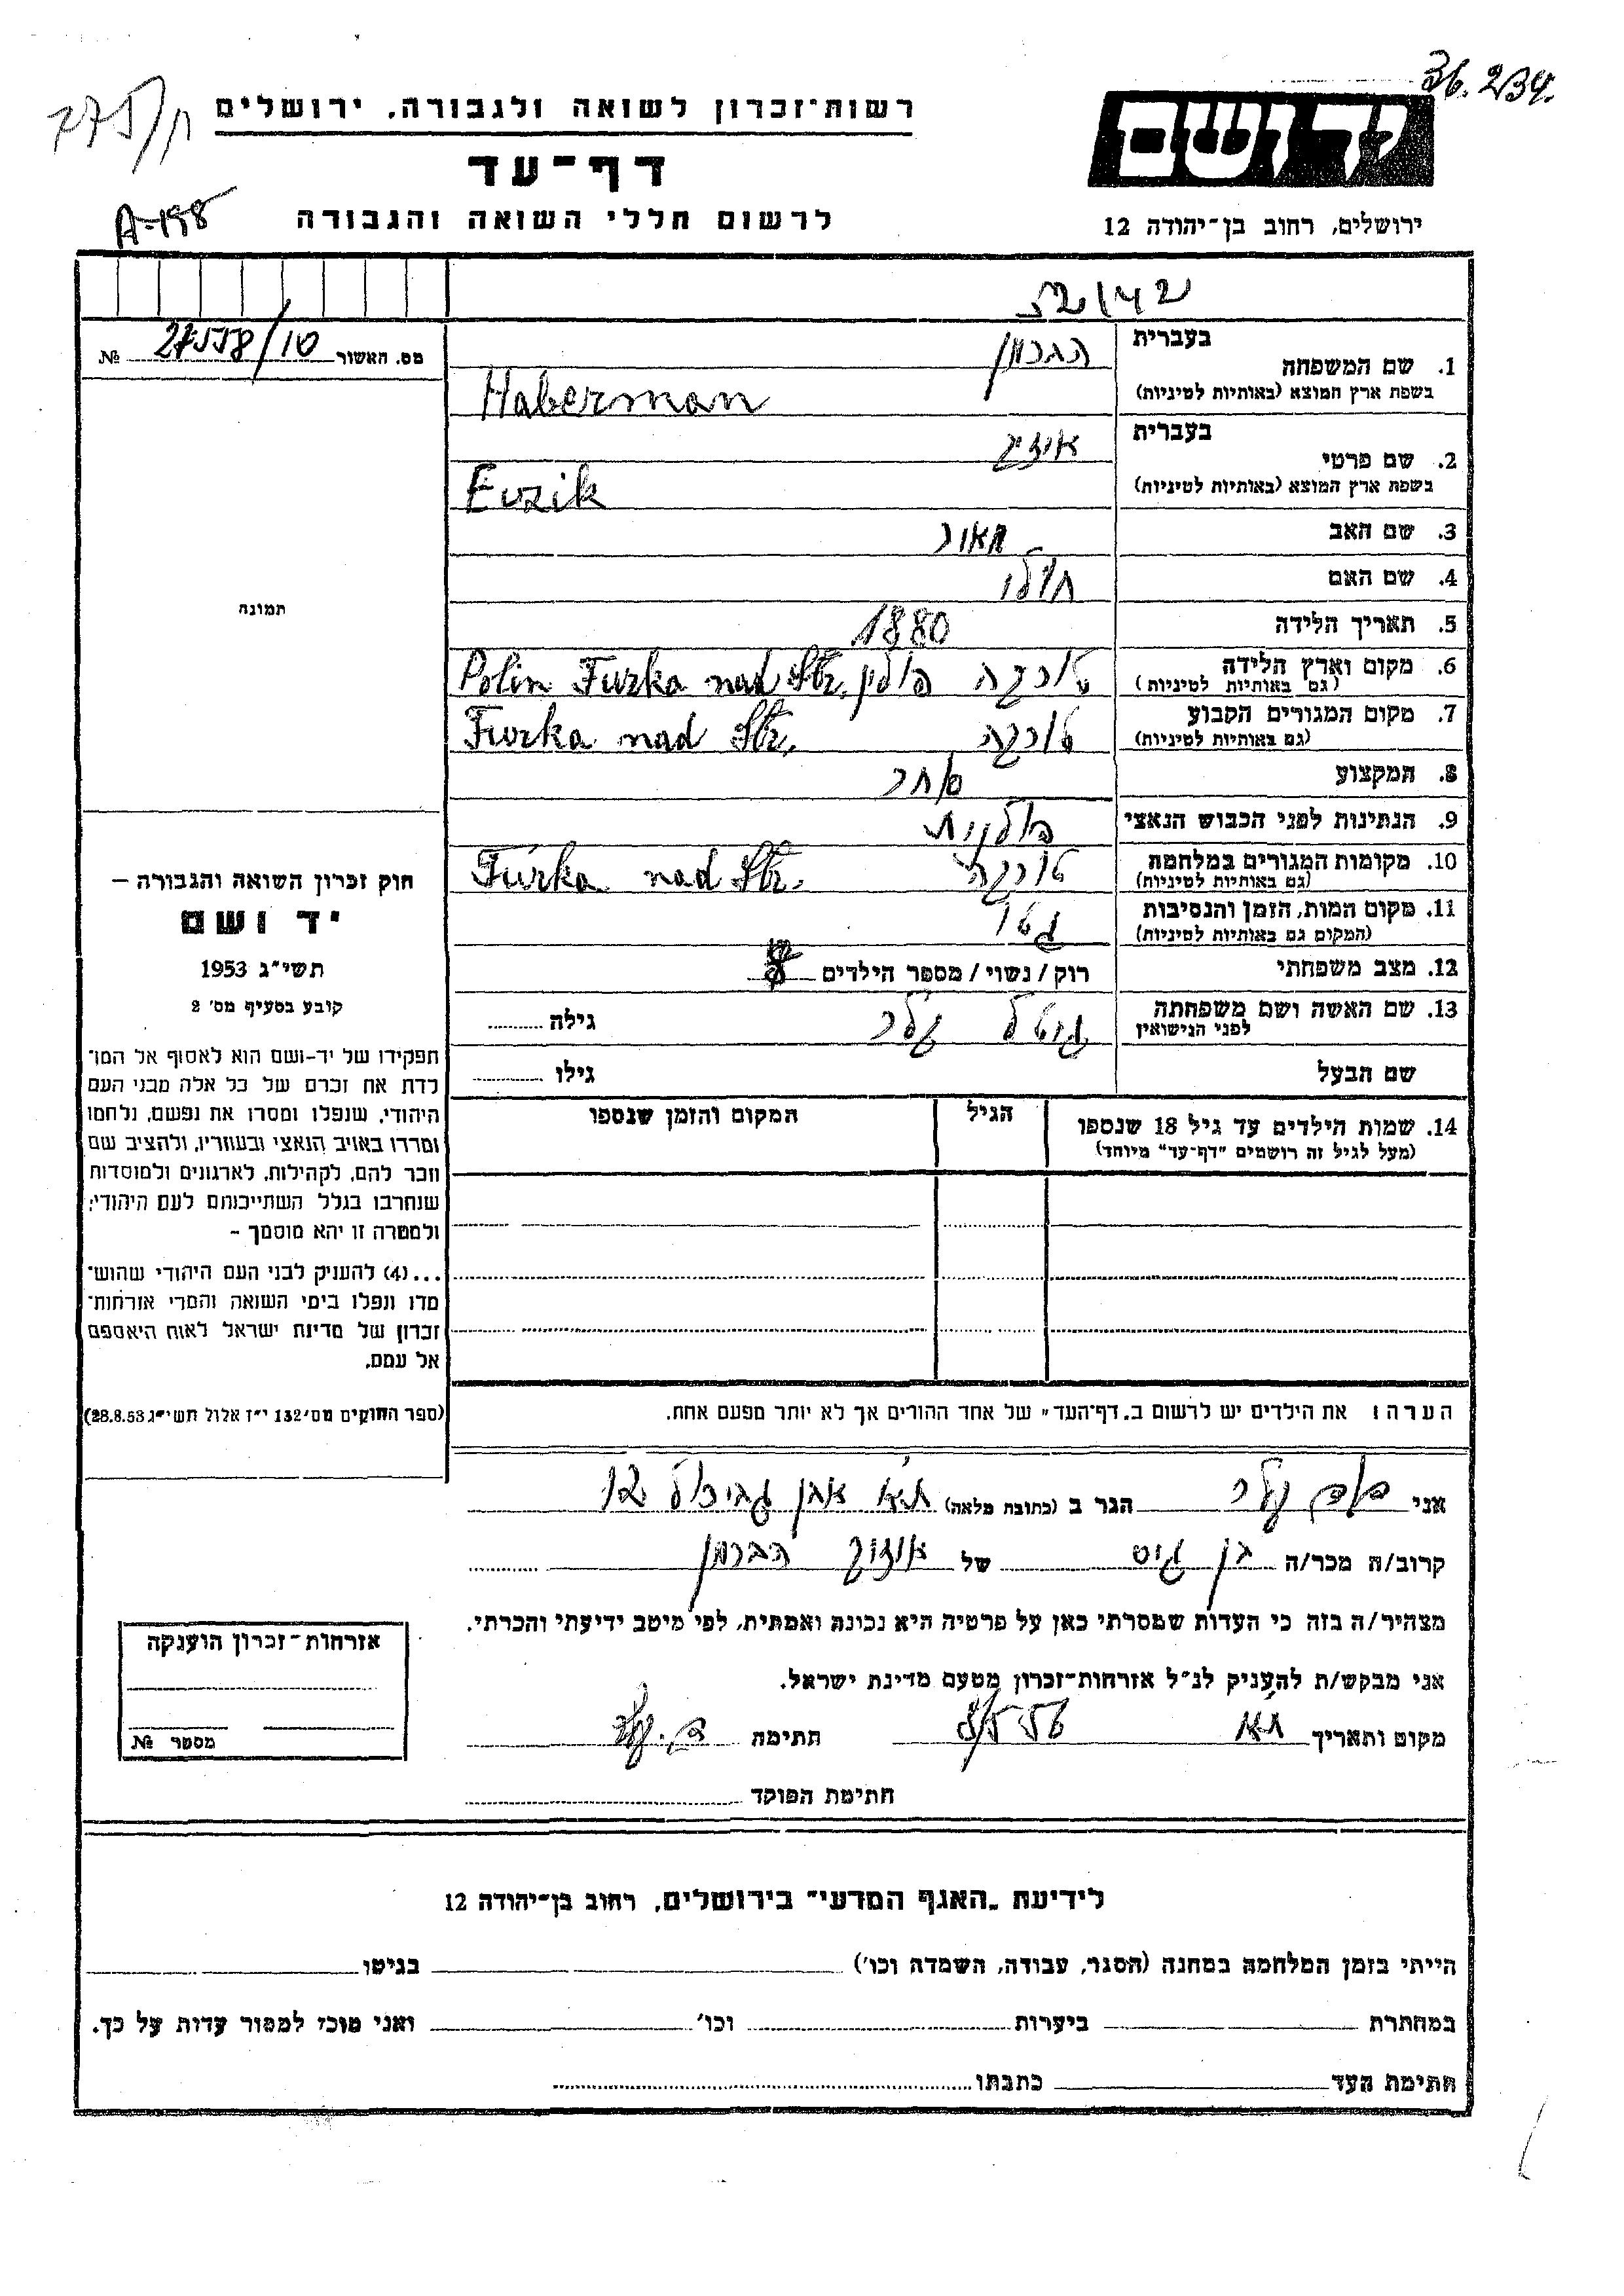 36.234.
רשות־זכרון לשואה ולגבורה, ירושלים
יד ושם
דף־עד
לרשום חללי השואה והגבורה
ירושלים, רחוב בן־יהודה 12
A-188
מס. האשור 27558/10 №
בעברית
1. שם המשפחה הברמן
בשפת ארץ המוצא (באותיות לטיניות) Haberman
בעברית
2. שם פרטי
בשפת ארץ המוצא (באותיות לטיניות) Euzik
3. שם האב
4. שם האם
5. תאריך הלידה 1880
6. מקום וארץ הלידה טורקה פולין Polin Turka nad Str.
(גם באותיות לטיניות)
7. מקום המגורים הקבוע טורקה Turka nad Str.
(גם באותיות לטיניות)
8. המקצוע סוחר
9. הנתינות לפני הכבוש הנאצי פולנית
10. מקומות המגורים במלחמה טורקה Turka nad Str.
(גם באותיות לטיניות)
11. מקום המות, הזמן והנסיבות גטו
(המקום גם באותיות לטיניות)
12. מצב משפחתי רוק / נשוי / מספר הילדים
13. שם האשה ושם משפחתה גיטל קלר גילה
לפני הנישואין
שם הבעל גילו
14. שמות הילדים עד גיל 18 שנספו הגיל המקום והזמן שנספו
(מעל לגיל זה רושמים "דף־עד" מיוחד)
תמונה
חוק זכרון השואה והגבורה —
יד ושם
תשי"ג 1953
קובע בסעיף מס' 2
תפקידו של יד-ושם הוא לאסוף אל המו־
לדת את זכרם של כל אלה מבני העם
היהודי, שנפלו ומסרו את נפשם, נלחמו
ומרדו באויב הנאצי ובעוזריו, ולהציב שם
וזכר להם, לקהילות, לארגונים ולמוסדות
שנחרבו בגלל השתייכותם לעם היהודי;
ולמטרה זו יהא מוסמך –
...(4) להעניק לבני העם היהודי שהוש־
מדו ונפלו בימי השואה והמרי אזרחות־
זכרון של מדינת ישראל לאות היאספם
אל עמם.
(ספר החוקים מס' 132 י"ז אלול תשי"ג 28.8.53)
הערה: את הילדים יש לרשום ב„דף־העד" של אחד ההורים אך לא יותר מפעם אחת.
אני קלר הגר ב (כתובת מלאה) ת"א אבן גבירול 12
קרוב/ה מכר/ה בן גיס של הברמן
מצהיר/ה בזה כי העדות שמסרתי כאן על פרטיה היא נכונה ואמתית, לפי מיטב ידיעתי והכרתי.
אני מבקש/ת להעניק לנ"ל אזרחות־זכרון מטעם מדינת ישראל.
מקום ותאריך ת"א חתימה
חתימת הפוקד
אזרחות־זכרון הוענקה
מספר №
לידיעת „האגף המדעי" בירושלים, רחוב בן־יהודה 12
הייתי בזמן המלחמה במחנה (הסגר, עבודה, השמדה וכו') בגיטו
במחתרת ביערות וכו' ואני מוכן למסור עדות על כך.
חתימת העד כתבתו